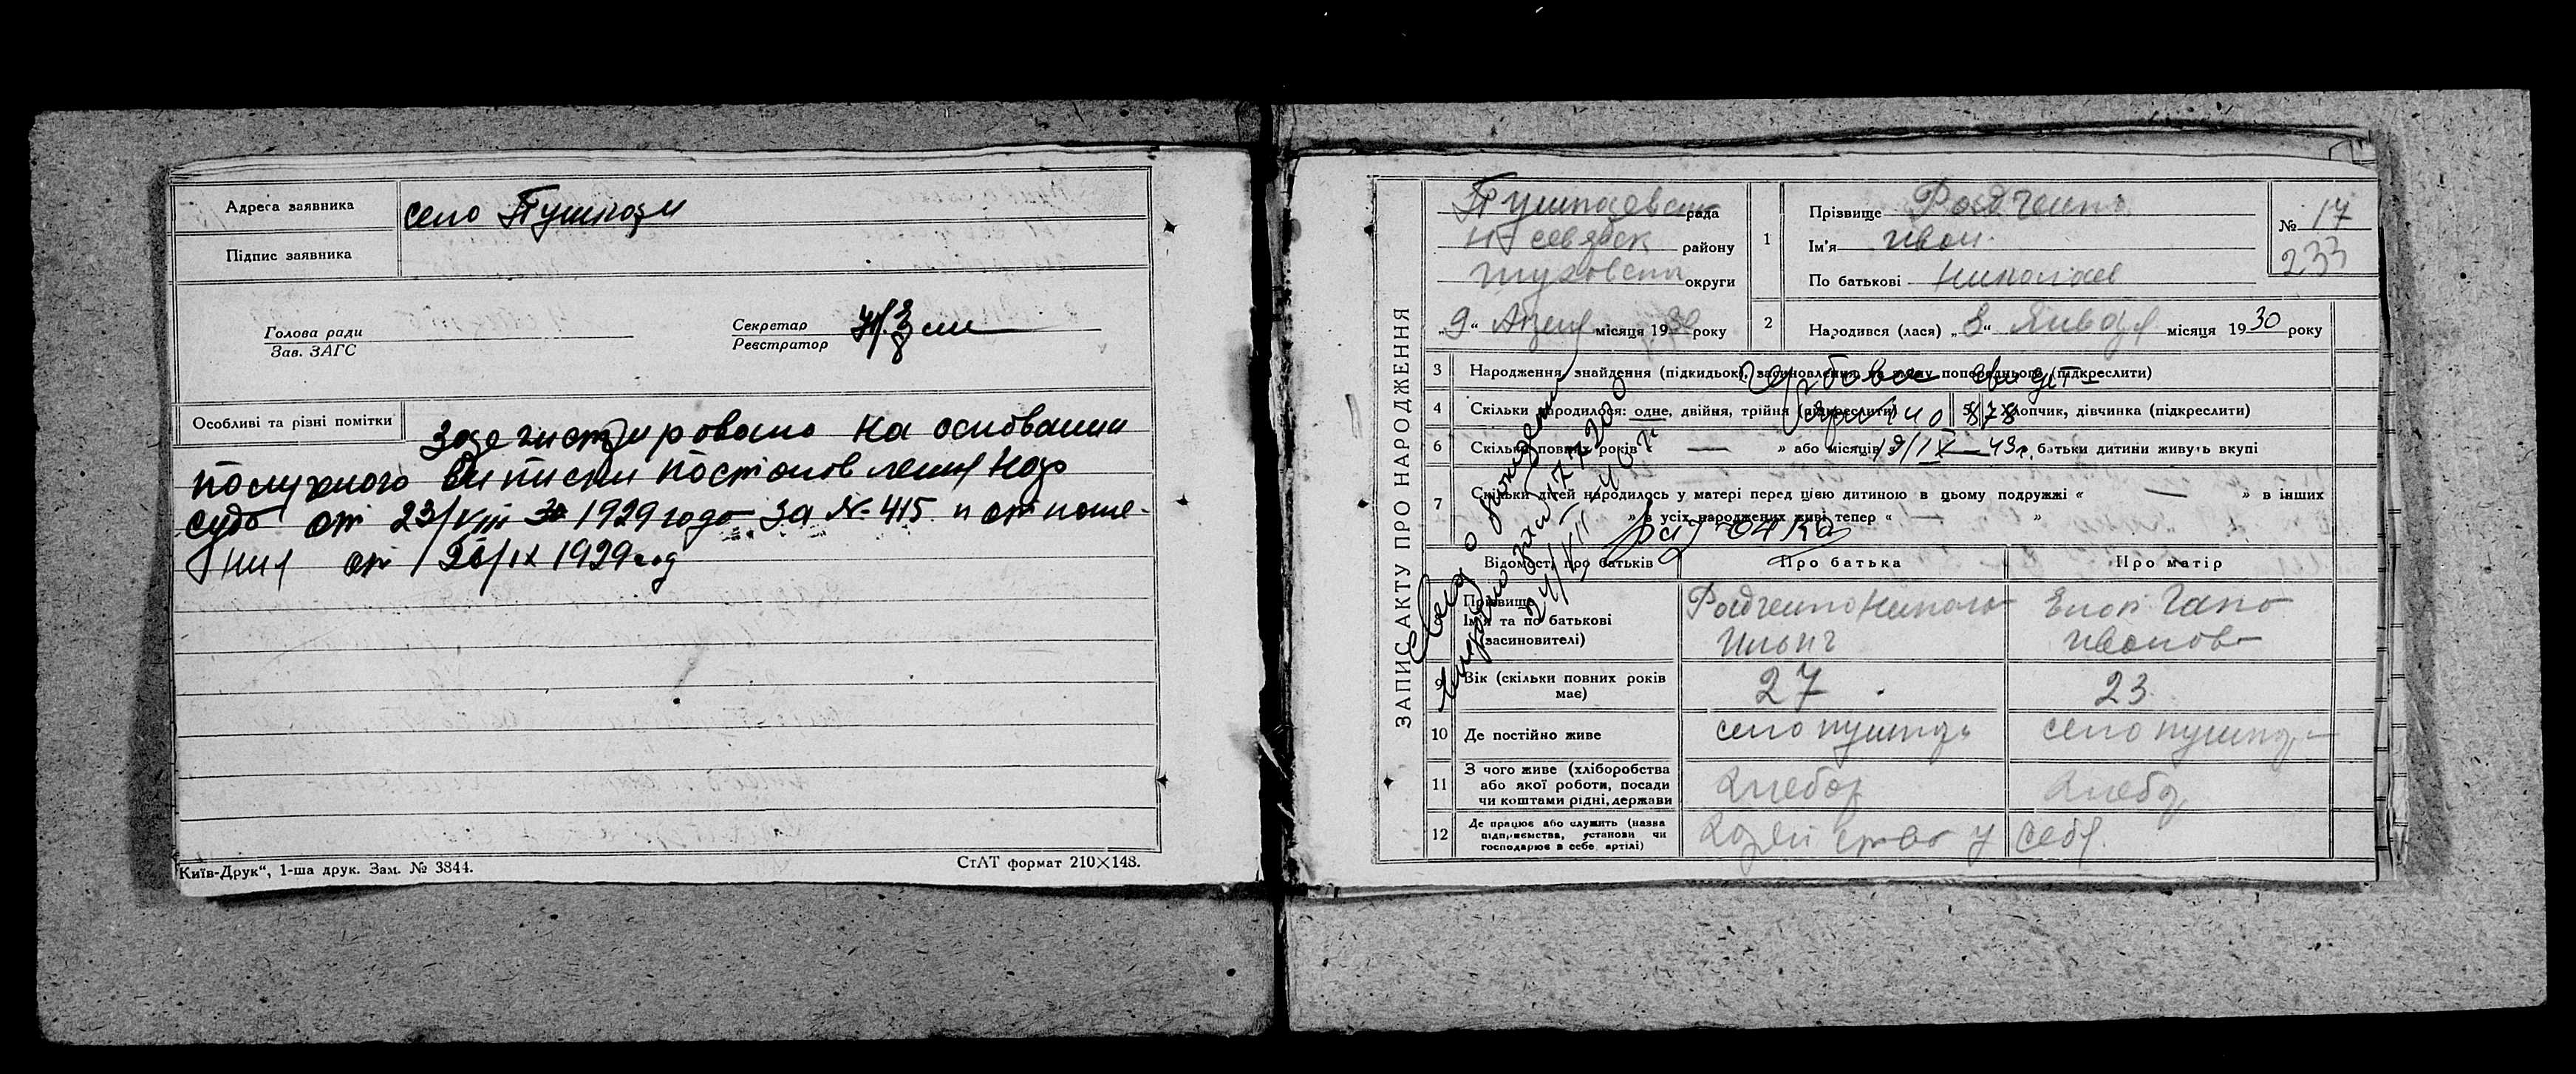 Адреса заявника
село Пушкари
Підпис заявника
Голова ради
Зав. ЗАГС
Секретар
Реєстратор
Особливі та різні помітки
Зарегистрировано на основании
послужного виписки постоновления Нар
суда от 23/VIII 1929 года за № 415 и отноше-
ния от 26/IX 1929 год
Київ-Друк“, 1-ша друк. Зам. № 3844.
СтАТ формат 210×148.
ЗАПИС АКТУ ПРО НАРОДЖЕННЯ
рада
району
округи
„9“ Апреля місяця 1930 року
1
Прізвище Радченко
Ім'я Иван
По батькові Николаев
№ 17
233
2
Народився (лася) „3“ Января місяця 1930 року
3 Народження знайдення (підкидьок), засиновлення, на зміну попереднього (підкреслити)
4 Скільки народилося: одне, двійня, трійня (підкреслити)
хлопчик, дівчинка (підкреслити)
6 Скільки повних років « — » або місяців
19/IX — 43 г. батьки дитини живуть вкупі
7 Скільки дітей народилось у матері перед цією дитиною в цьому подружжі « — » в інших
» в усіх народжених живі тепер « — »
Відомості про батьків
Про батька
Про матір
Прізвище
Ім'я та по батькові
(засиновителі)
Радченко Никола
Ильич
Гапо
Иванов
9 Вік (скільки повних років має)
27
23
10 Де постійно живе
село пушкар
село пушкар
11 З чого живе (хліборобства
або якої роботи, посади
чи коштами рідні, держави
хлебор
хлебор
12 Де працює або служить (назва
підприємства, установи чи
господарює в себе, артілі)
у себя.